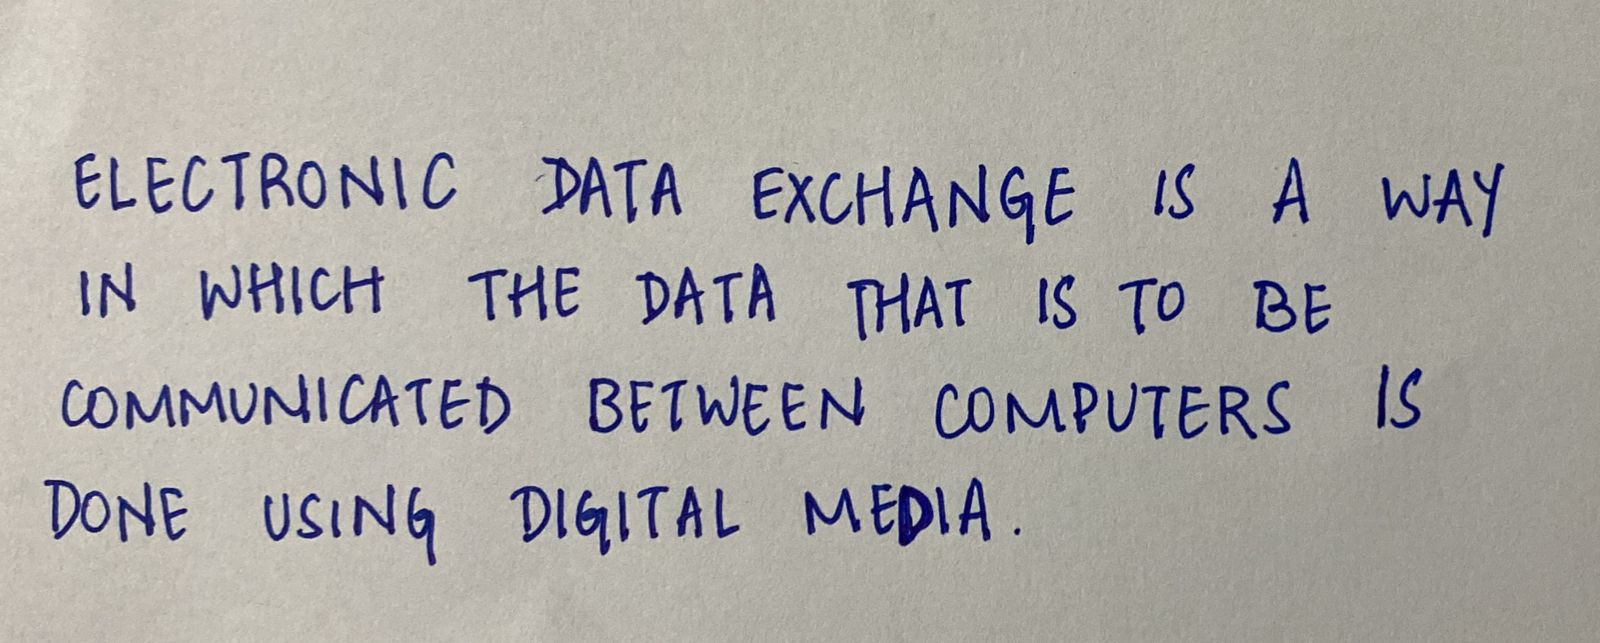 ELECTRONIC DATA EXCHANGE IS A WAY
IN WHICH THE DATA THAT IS TO BE
COMMUNICATED BETWEEN COMPUTERS IS
DONE USING DIGITAL MEDIA.